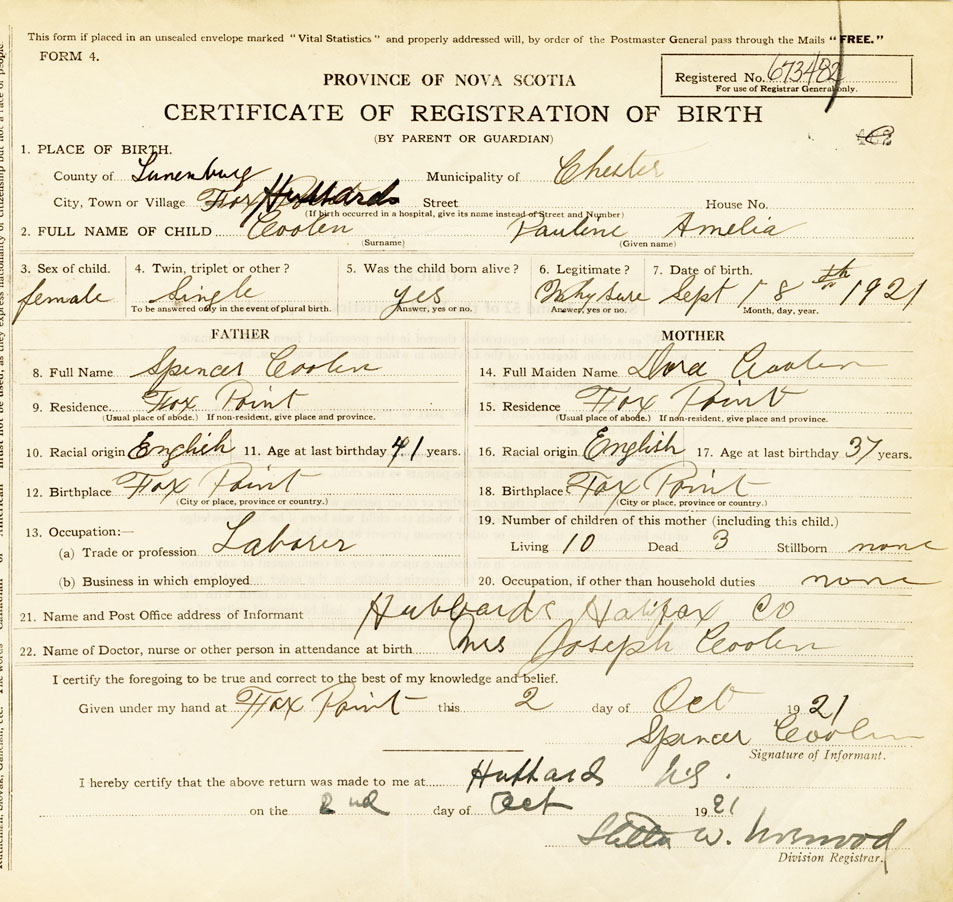 This form if placed in an unsealed envelope marked "Vital Statistics" and properly addressed will, by order of the Postmaster General pass through the Mails "FREE."
FORM 4.
Registered No. 673482
For use of Registrar General only.
PROVINCE OF NOVA SCOTIA
CERTIFICATE OF REGISTRATION OF BIRTH
(BY PARENT OR GUARDIAN)
1. PLACE OF BIRTH.
County of Lunenburg Municipality of Chester
City, Town or Village Fox Hubbards Street House No.
(If birth occurred in a hospital, give its name instead of Street and Number)
2. FULL NAME OF CHILD Coolen Pauline Amelia
(Surname) (Given name)
3. Sex of child. 4. Twin, triplet or other? 5. Was the child born alive? 6. Legitimate? 7. Date of birth.
female Single yes Why sure Sept 18th 1921
To be answered only in the event of plural birth. Answer, yes or no. Answer, yes or no. Month, day, year.
FATHER
8. Full Name Spencer Coolen
9. Residence Fox Point
(Usual place of abode.) If non-resident, give place and province.
10. Racial origin English 11. Age at last birthday 41 years.
12. Birthplace Fox Point
(City or place, province or country.)
13. Occupation:—
(a) Trade or profession Laborer
(b) Business in which employed
MOTHER
14. Full Maiden Name Dora Coolen
15. Residence Fox Point
(Usual place of abode.) If non-resident, give place and province.
16. Racial origin English 17. Age at last birthday 37 years.
18. Birthplace Fox Point
(City or place, province or country.)
19. Number of children of this mother (including this child.)
Living 10 Dead 3 Stillborn none
20. Occupation, if other than household duties none
21. Name and Post Office address of Informant Hubbards Halifax Co
22. Name of Doctor, nurse or other person in attendance at birth Mrs Joseph Coolen
I certify the foregoing to be true and correct to the best of my knowledge and belief.
Given under my hand at Fox Point this 2 day of Oct 1921
Spencer Coolen
Signature of Informant.
I hereby certify that the above return was made to me at Hubbards N.S.
on the 2nd day of Oct 1921
W.
Division Registrar.